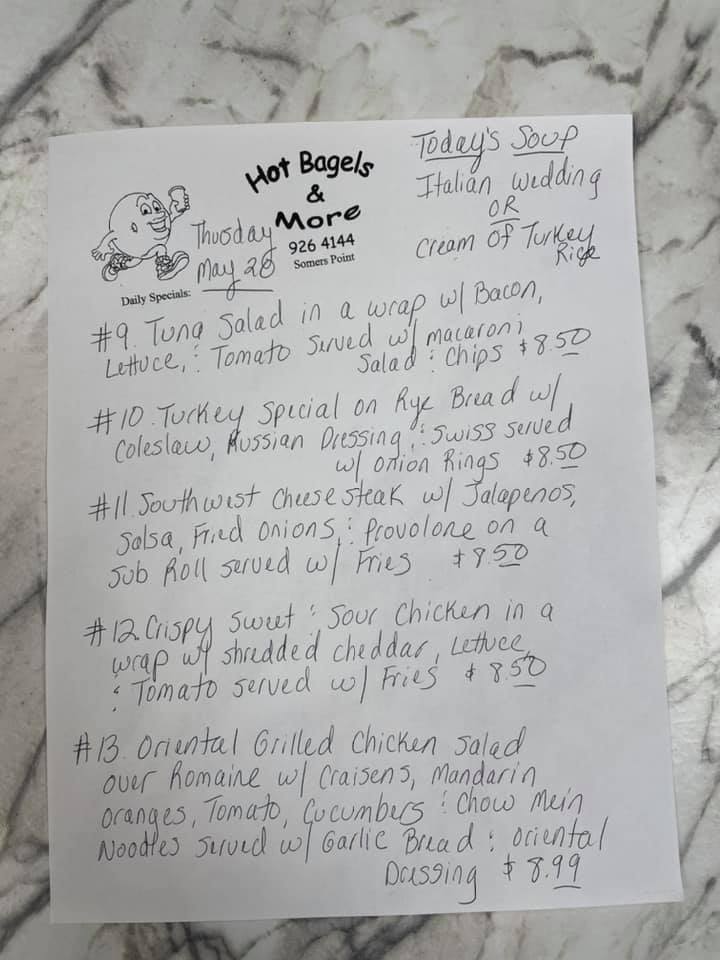 Hot Bagels
&
More
926 4144
Somers Point
Thusday
May 28
Daily Specials:
Today's Soup
Italian Wedding
OR
Cream Of Turkey
Rice
#9. Tuna Salad in a wrap w/ Bacon,
Lettuce, & Tomato Served w/ macaroni
Salad & Chips $8.50
#10. Turkey Special on Rye Bread w/
Coleslaw, Russian Dressing, & Swiss served
w/ onion Rings $8.50
#11. Southwest Cheesesteak w/ Jalapenos,
Salsa, Fried Onions, & Provolone on a
Sub Roll served w/ Fries $8.50
#12. Crispy Sweet & Sour Chicken in a
wrap w/ shredded cheddar, Lettuce,
& Tomato served w/ Fries $8.50
#13. Oriental Grilled Chicken Salad
over Romaine w/ Craisens, Mandarin
oranges, Tomato, Cucumbers & Chow Mein
Noodles Served w/ Garlic Bread & Oriental
Dressing $8.99